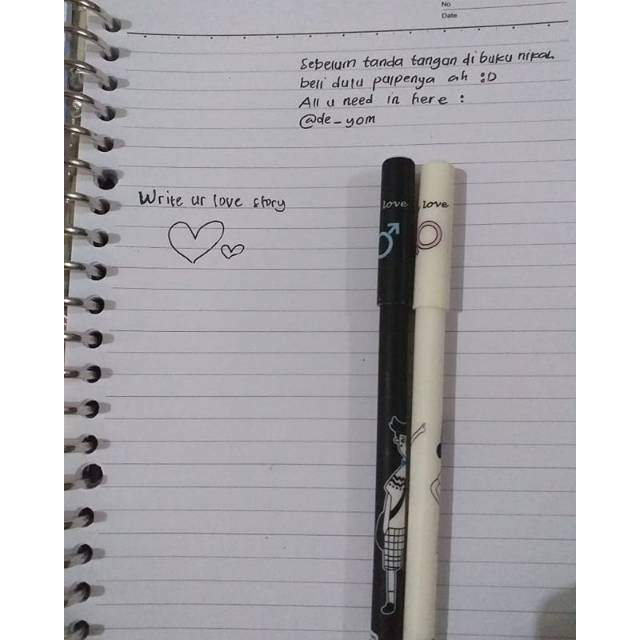 No
Date
Sebelum tanda tangan di buku nikah
beli dulu pulpenya ah :D
All u need in here :
@de_yom
Write ur love story
love
love